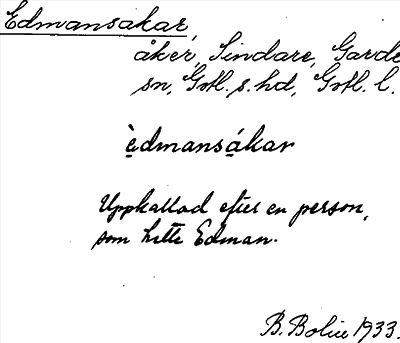 Edmansakar,
åker, Sindare, Garde
sn, Gotl. s. hd, Gotl. l.
 èdmansákar
Uppkallad efter en person,
som hette Edman.
B. Bolin 1933.